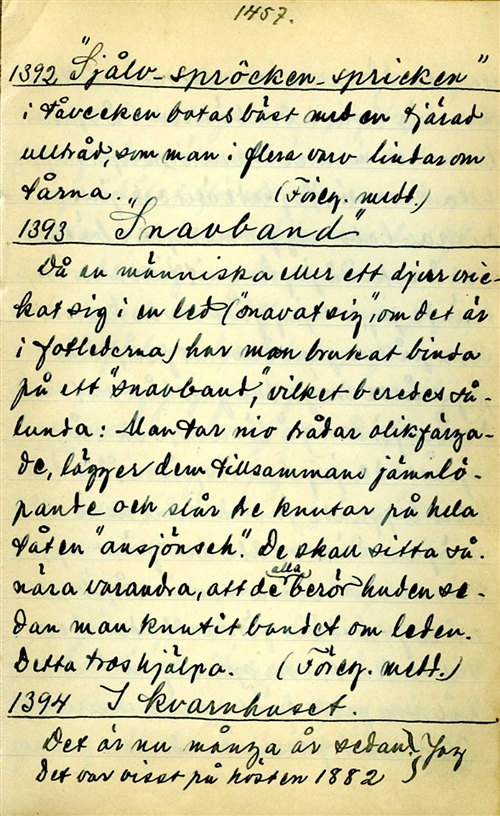 1457.
1392 "Själv-spröcken-spricken"
i tåvecken botas bäst med en tjärad
ulltråd, som man i flera varv lindar om
tårna. (Föreg. medd.)
1393 "Snavband"
Då en människa eller ett djur vric-
kat sig i en led ("snavat sig", om det är
i fotlederna) har man brukat binda
på ett "snavband," vilket beredes så-
lunda: Man tar nio trådar olikfärga-
de, lägger dem tillsammans jämnlö-
pande och slår tre knutar på hela
tåten "ansjönsch". De skall sitta så
nära varandra, att de alla berör huden se-
dan man knutit bandet om leden.
Detta tros hjälpa. (Föreg. medd.)
1394 I kvarnhuset.
Det är nu många år sedan. Jag
Det var visst på hösten 1882